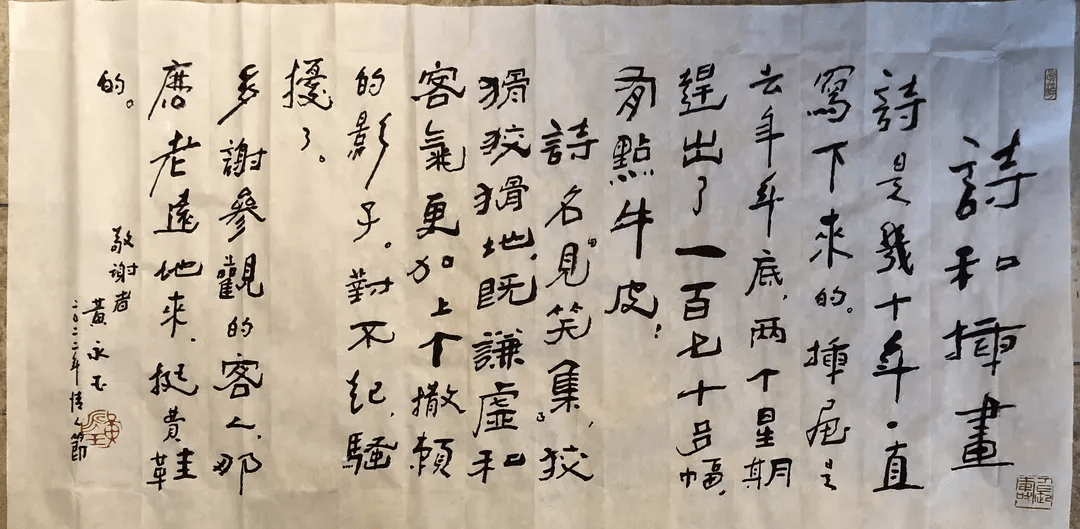 詩和揷畫
詩是幾十年一直
寫下來的。揷画是
去年年底，两个星期
趕出了一百七十多幅，
有點牛皮！
詩名“見笑集”，狡
猾狡猾地，既謙虛和
客氣更加上个撒賴
的影子。對不起，騷
擾了。
多謝參觀的客人，那
麽老遠地來，挺費鞋
的。
敬謝者
黃永玉
二〇二二年情人節